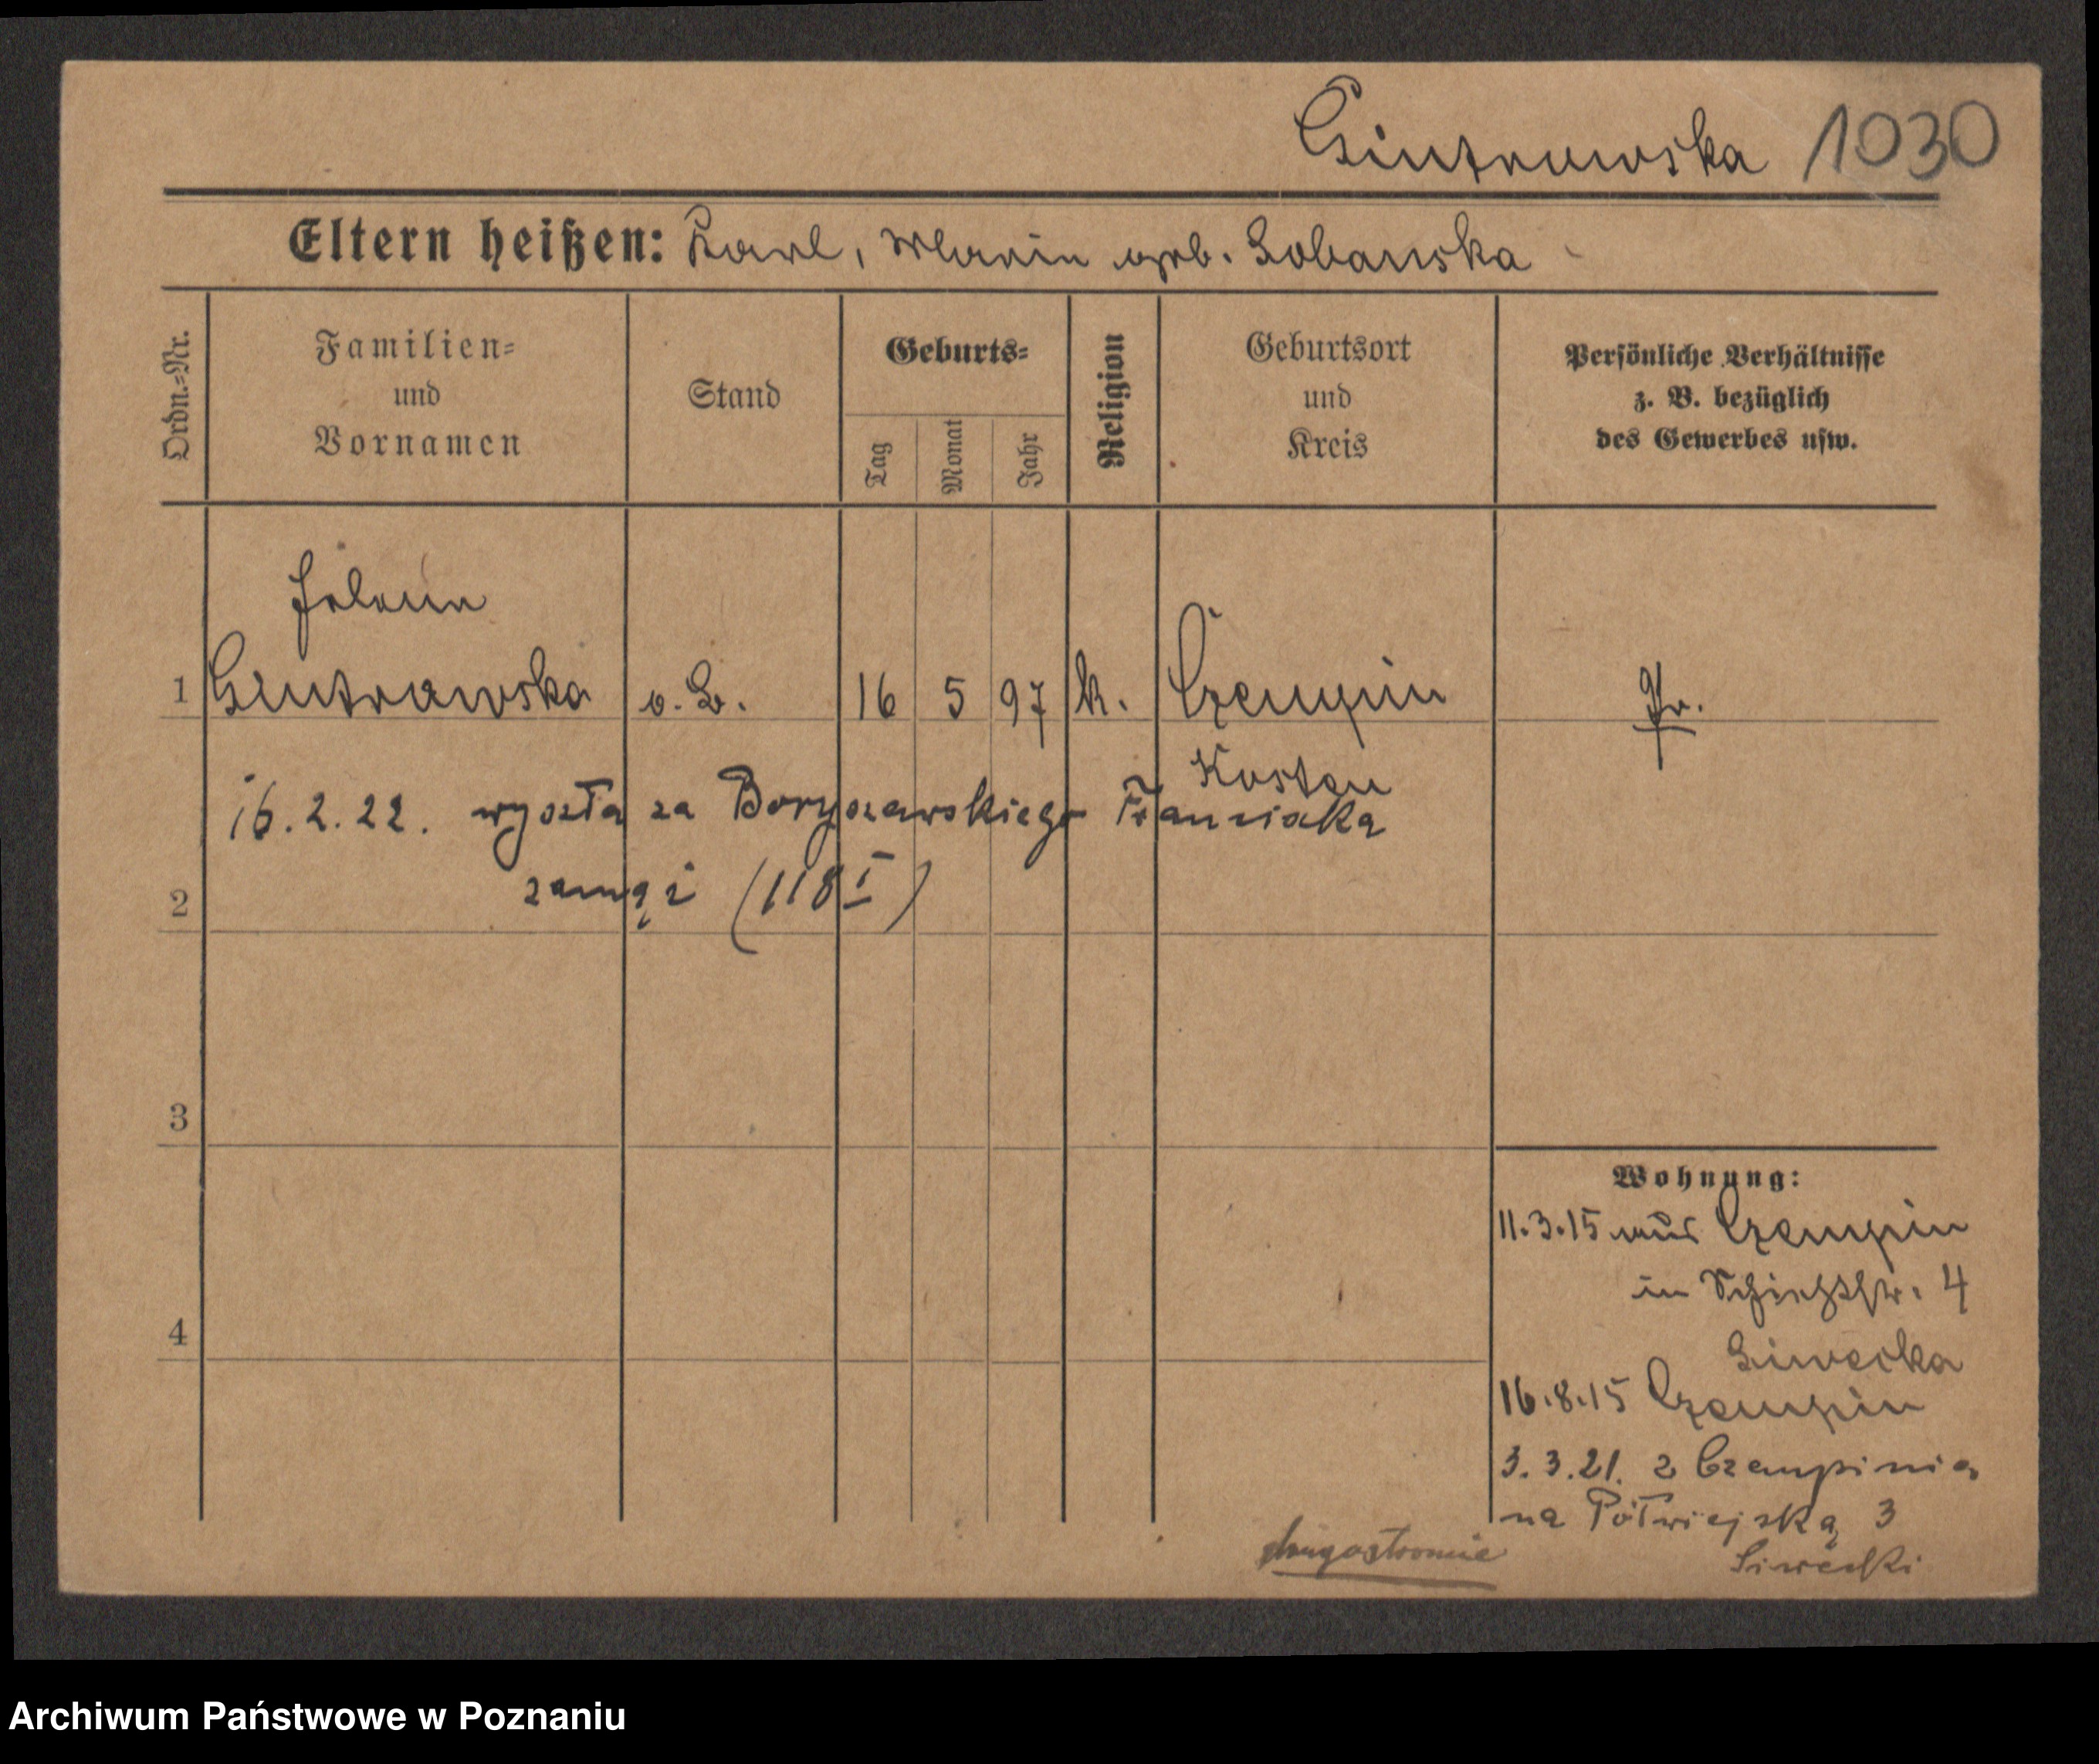 1030
Eltern heißen: Karl, Maria geb. Lobanska
Ordn.-Nr.
Familien-
und
Vornamen
Stand
Geburts-
Tag
Monat
Jahr
Religion
Geburtsort
und
Kreis
Persönliche Verhältnisse
z. B. bezüglich
des Gewerbes usw.
1 16 5 97 k. Czempin Pr.
Kosten
16.2.22. wyszła za Boryszewskiego Franciszka
2 zamąż (118 I)
3
4
Wohnung:
11.3.15 aus Czempin
in Schießstr. 4
Siwecka
16.8.15 Czempin
3.3.21. z Czempinia
na Półwiejską 3
Siwecki
długostronnie
Archiwum Państwowe w Poznaniu